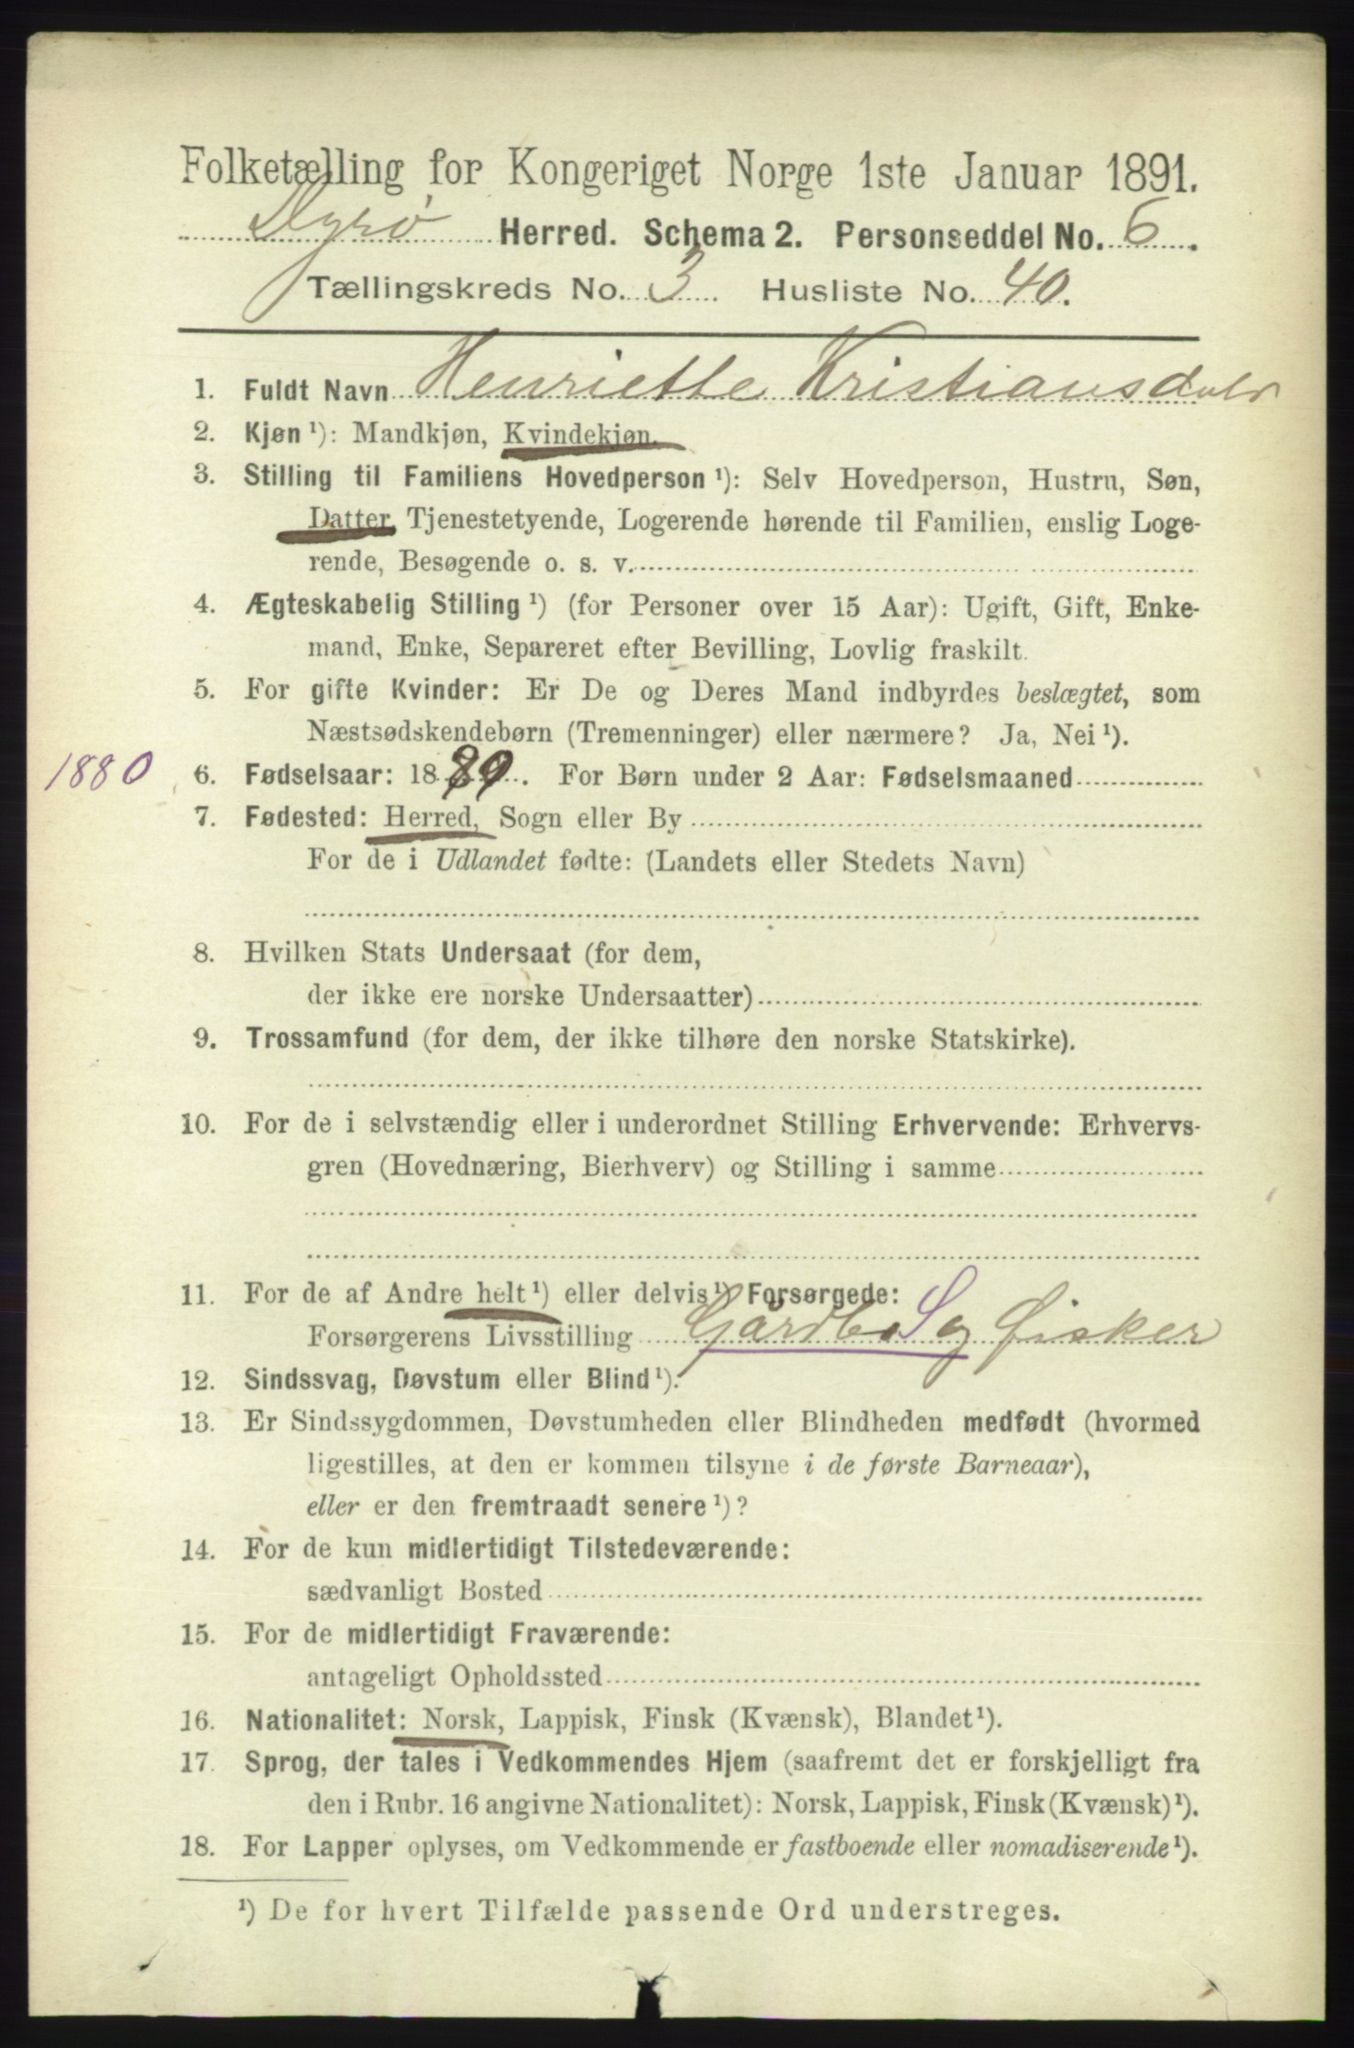 Folketælling for Kongeriget Norge 1ste Januar 1891.
Dyrø Herred. Schema 2. Personseddel No. 6.
Tællingskreds No. 3. Husliste No. 40.
1. Fuldt Navn Henriette Kristiansdatr
2. Kjøn ¹): Mandkjøn, Kvindekjøn.
3. Stilling til Familiens Hovedperson ¹): Selv Hovedperson, Hustru, Søn,
Datter, Tjenestetyende, Logerende hørende til Familien, enslig Loge-
rende, Besøgende o. s. v.
4. Ægteskabelig Stilling ¹) (for Personer over 15 Aar): Ugift, Gift, Enke-
mand, Enke, Separeret efter Bevilling, Lovlig fraskilt.
5. For gifte Kvinder: Er De og Deres Mand indbyrdes beslægtet, som
Næstsødskendebørn (Tremenninger) eller nærmere? Ja, Nei ¹).
1880 6. Fødselsaar: 18 . For Børn under 2 Aar: Fødselsmaaned
7. Fødested: Herred, Sogn eller By
For de i Udlandet fødte: (Landets eller Stedets Navn)
8. Hvilken Stats Undersaat (for dem,
der ikke ere norske Undersaatter)
9. Trossamfund (for dem, der ikke tilhøre den norske Statskirke).
10. For de i selvstændig eller i underordnet Stilling Erhvervende: Erhvervs-
gren (Hovednæring, Bierhverv) og Stilling i samme
11. For de af Andre helt ¹) eller delvis ¹) Forsørgede:
Forsørgerens Livsstilling Gårdb. S og fisker
12. Sindssvag, Døvstum eller Blind ¹).
13. Er Sindssygdommen, Døvstumheden eller Blindheden medfødt (hvormed
ligestilles, at den er kommen tilsyne i de første Barneaar),
eller er den fremtraadt senere ¹)?
14. For de kun midlertidigt Tilstedeværende:
sædvanligt Bosted
15. For de midlertidigt Fraværende:
antageligt Opholdssted
16. Nationalitet: Norsk, Lappisk, Finsk (Kvænsk), Blandet ¹).
17. Sprog, der tales i Vedkommendes Hjem (saafremt det er forskjelligt fra
den i Rubr. 16 angivne Nationalitet): Norsk, Lappisk, Finsk (Kvænsk) ¹).
18. For Lapper oplyses, om Vedkommende er fastboende eller nomadiserende ¹).
¹) De for hvert Tilfælde passende Ord understreges.